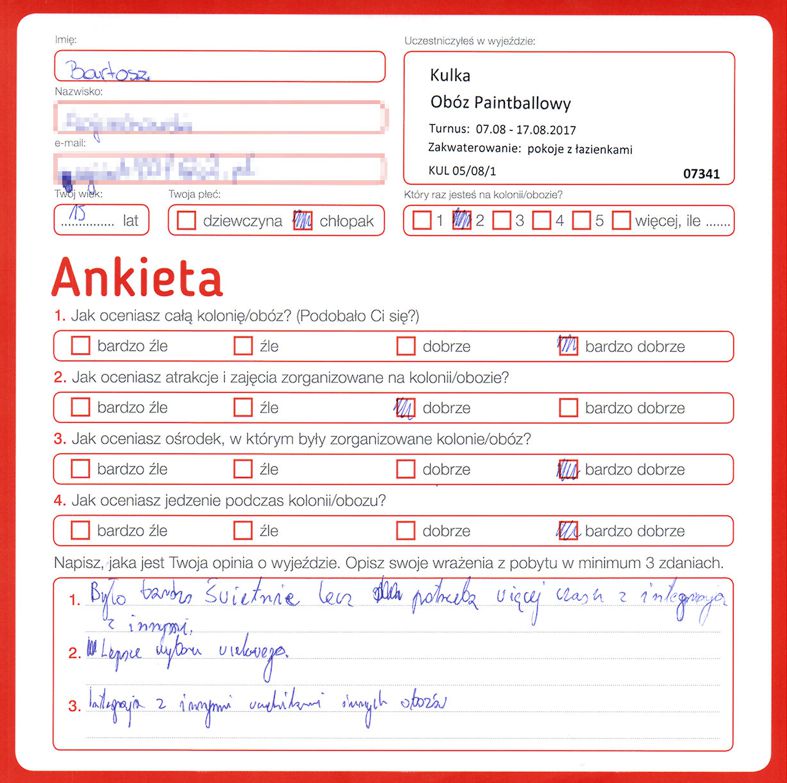 Imię:
Bartosz
Nazwisko:
e-mail:
Twój wiek:
15 lat
Twoja płeć:
dziewczyna chłopak
Uczestniczyłeś w wyjeździe:
Kulka
Obóz Paintballowy
Turnus: 07.08 - 17.08.2017
Zakwaterowanie: pokoje z łazienkami
KUL 05/08/1 07341
Który raz jesteś na kolonii/obozie?
1 2 3 4 5 więcej, ile .......
Ankieta
1. Jak oceniasz całą kolonię/obóz? (Podobało Ci się?)
bardzo źle źle dobrze bardzo dobrze
2. Jak oceniasz atrakcje i zajęcia zorganizowane na kolonii/obozie?
bardzo źle źle dobrze bardzo dobrze
3. Jak oceniasz ośrodek, w którym były zorganizowane kolonie/obóz?
bardzo źle źle dobrze bardzo dobrze
4. Jak oceniasz jedzenie podczas kolonii/obozu?
bardzo źle źle dobrze bardzo dobrze
Napisz, jaka jest Twoja opinia o wyjeździe. Opisz swoje wrażenia z pobytu w minimum 3 zdaniach.
1. Było bardzo świetnie lecz potrzeba więcej czasu z integracją
z innymi.
2. Lepsze wyboru wiekowego.
3. Integracja z innymi innych obozów